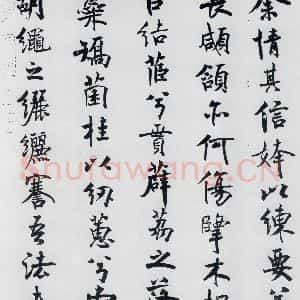 余情其信姱以練要兮
長顑頷亦何傷擥木根
以結茝兮貫薜荔之落
蘂矯菌桂以紉蕙兮索
胡繩之纚纚謇吾法夫
Shufawang.CN